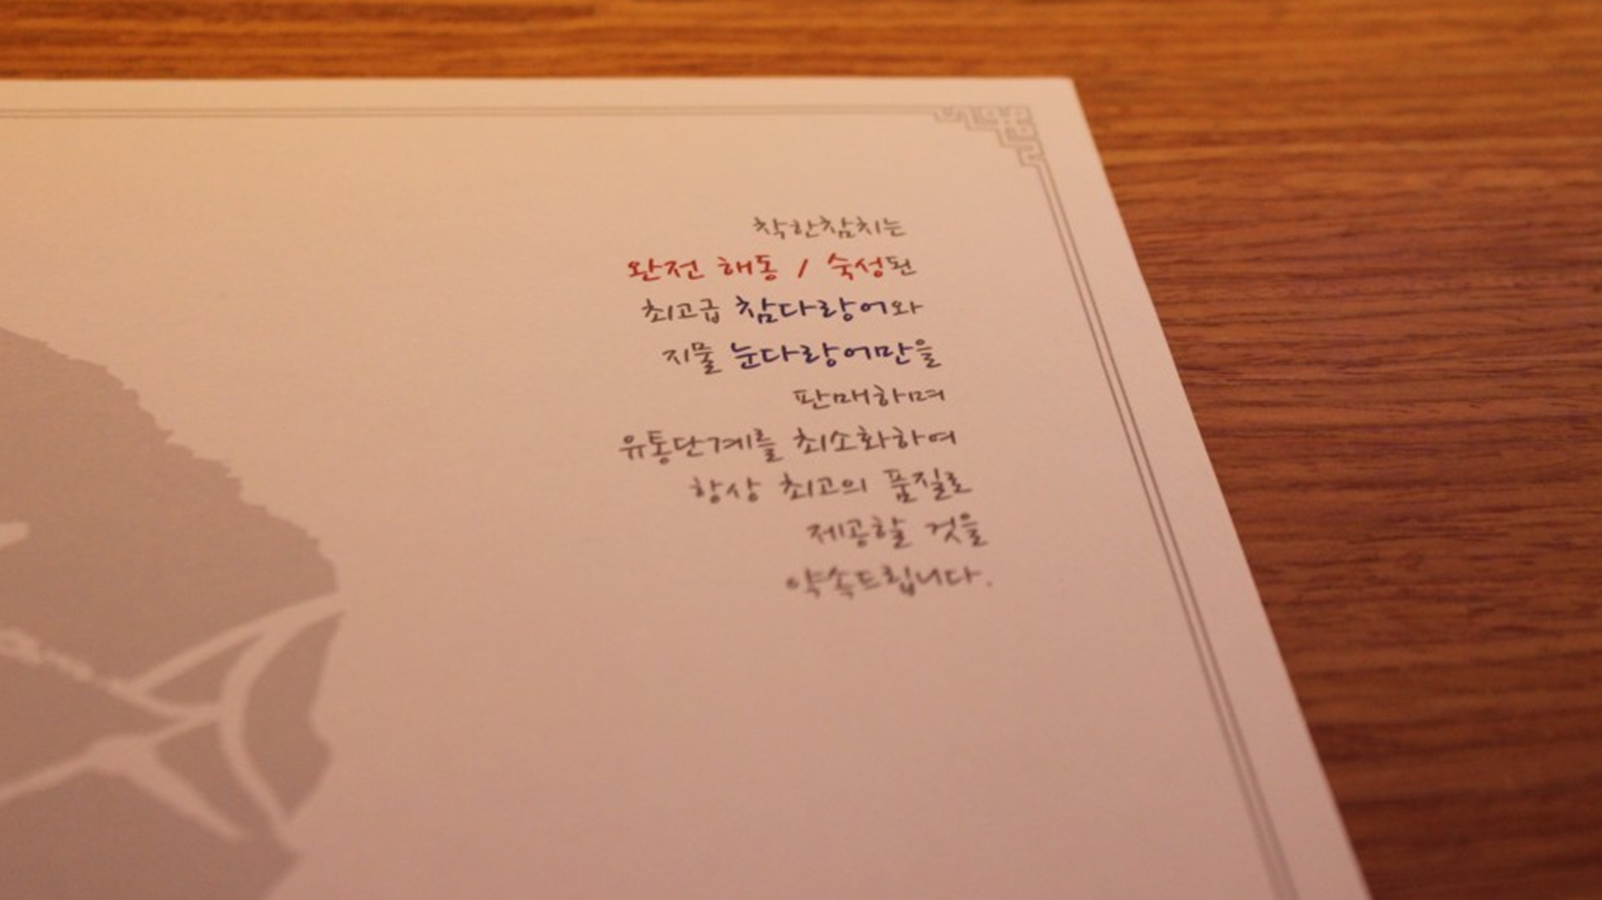 착한참치는
완전 해동 / 숙성된
최고급 참다랑어와
지물 눈다랑어만을
판매하며
유통단계를 최소화하여
항상 최고의 품질로
제공할 것을
약속드립니다.